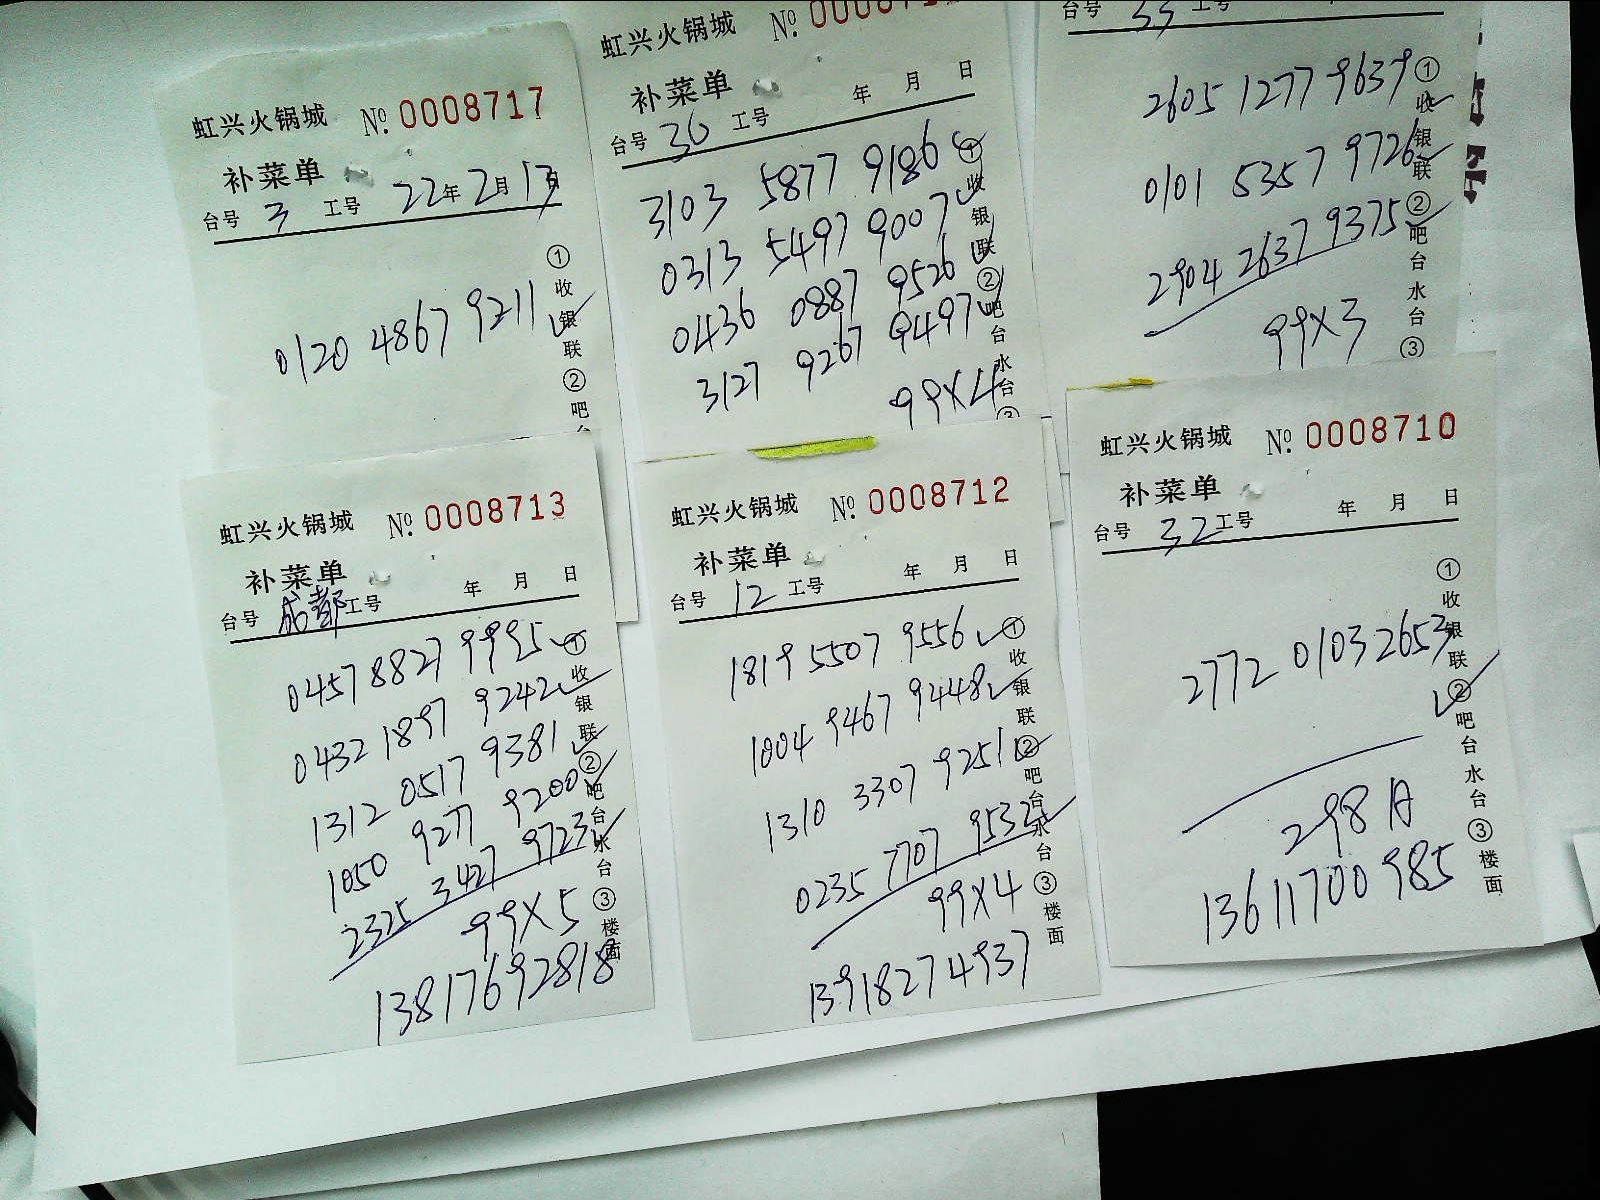 虹兴火锅城 No. 0008717
补菜单
台号 3 工号 22年2月13日
0120 4867 9211
①收银联②吧台
虹兴火锅城 No.
补菜单 年 月 日
台号 36 工号
3103 5877 9186
0313 5497 9007
0436 0887 9526
3127 9267 9497
99X4
①收银联②吧台水台③
台号 33 工号
2605 1277 9639
0101 5357 9726
2904 2637 9375
99X3
①收银联②吧台水台③
虹兴火锅城 No. 0008713
补菜单 年 月 日
台号 成都 工号
0457 8827 9995
0432 1897 9242
1312 0517 9381
1050 9277 9200
2325 3427 9723
99X5
13817692818
①收银联②吧台水台③楼面
虹兴火锅城 No. 0008712
补菜单 年 月 日
台号 12 工号
1819 5507 9556
1004 9467 9448
1310 3307 9251
0235 7707 9532
99X4
13918274937
①收银联②吧台水台③楼面
虹兴火锅城 No. 0008710
补菜单 年 月 日
台号 32 工号
2772 0103 2653
298A
13611700985
①收银联②吧台水台③楼面